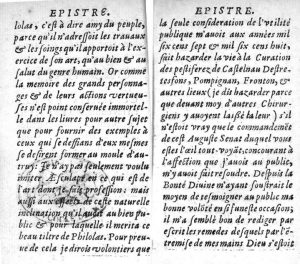 EPISTRE.
lolas, c'est à dire amy du peuple,
parce qu'il n'adressoit les travaux
& les soings qu'il apportoit à l'exercice
de son art, qu'au bien & au
salut du genre humain. Or comme
la memoire des grands personnages
& de leurs actions vertueuses
n'est point conservée immortelle
dans les livres pour autre sujet
que pour fournir des exemples à
ceux qui se
se desirent former au moule d'autruy:
Je n'ay pas seulement voulu
imiter en ce qui est de
l'art dont je fais profession: mais
aussi aux effets de ceste naturelle
inclination qu'il avoit au bien public
& pour laquelle il merita ce
beau tiltre de Philolas. Pour preuve
de cela je dirois volontiers que
EPISTRE.
la seule consideration de l'utilité
publique m'avoit aux années mil
six cens sept & mil six cens huit,
fait hazarder la vie à la Curation
des pestiferez de Castelnau Destressons,
Pompignan, Fronton, &
autres lieux (je dit hazarder parce
que devant moy d'autres Chirurgiens
y avoyent laissé la leur) s'il
n'estoit vray que le commandement
de cest Auguste Senat duquel vous
estes l'œil tout-voyãt, concourant à
l'affection que j'avois au public,
m'y avoit fait resoudre. Despuis la
Bonté Divine m'ayant fourny le
moyen de tesmoigner au public ma
bonne volonté en ceste occasion;
il m'a semblé bon de rediger par
escrit les remedes desquels par l'entremise
de mes mains Dieu s'estoit